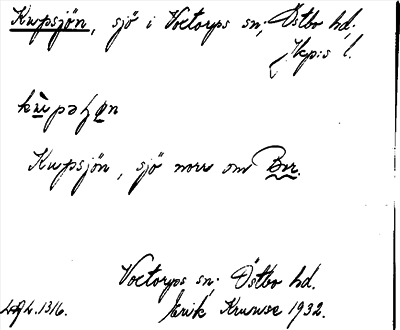 Kupsjön, sjö i Voxtorps sn, Östbo hd,
Jkp:s l.
Kupsjön, sjö norr om Bor.
Voxtorps sn: Östbo hd.
1316. Erik Kruuse 1932.